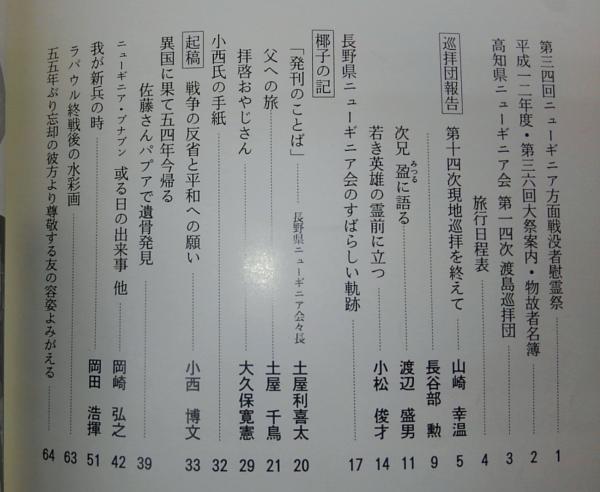 第三四回ニューギニア方面戦没者慰霊祭 1
平成一二年度・第三六回大祭案内・物故者名簿 2
高知県ニューギニア会 第一四次 渡島巡拝団 3
旅行日程表 4
巡拝団報告 第十四次現地巡拝を終えて 山崎 幸温 5
長谷部 勲 9
次兄 盈に語る 渡辺 盛男 11
みつる
若き英雄の霊前に立つ 小松 俊才 14
長野県ニューギニア会のすばらしい軌跡 17
椰子の記
「発刊のことば」 長野県ニューギニア会々長 土屋利喜太 20
父への旅 土屋 千鳥 21
拝啓おやじさん 大久保寛憲 29
小西氏の手紙 32
起稿 戦争の反省と平和への願い 小西 博文 33
異国に果て五四年今帰る
佐藤さんパプアで遺骨発見 39
ニューギニア・ブナブン 或る日の出来事 他 岡崎 弘之 42
我が新兵の時 岡田 浩揮 51
ラバウル終戦後の水彩画 63
五五年ぶり忘却の彼方より尊敬する友の容姿よみがえる 64